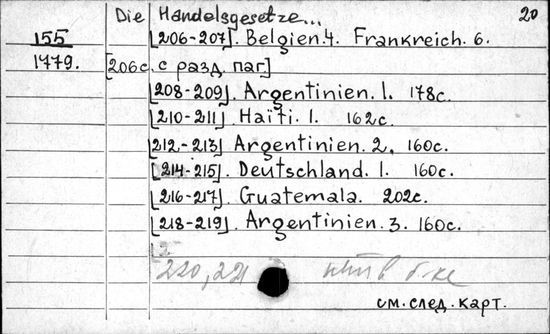 Die Handelsgesetze... 20
155 [206-207]. Belgien.4. Frankreich. 6.
1779. [206с. с разд. паг.]
[208-209]. Argentinien. 1. 178с.
[210-211]. Haïti. 1. 162с.
[212-213] Argentinien. 2. 160с.
[214-215]. Deutschland. 1. 160с.
[216-217]. Guatemala. 202с.
[218-219]. Argentinien. 3. 160с.
220, 221 нет в б-ке
см. след. карт.